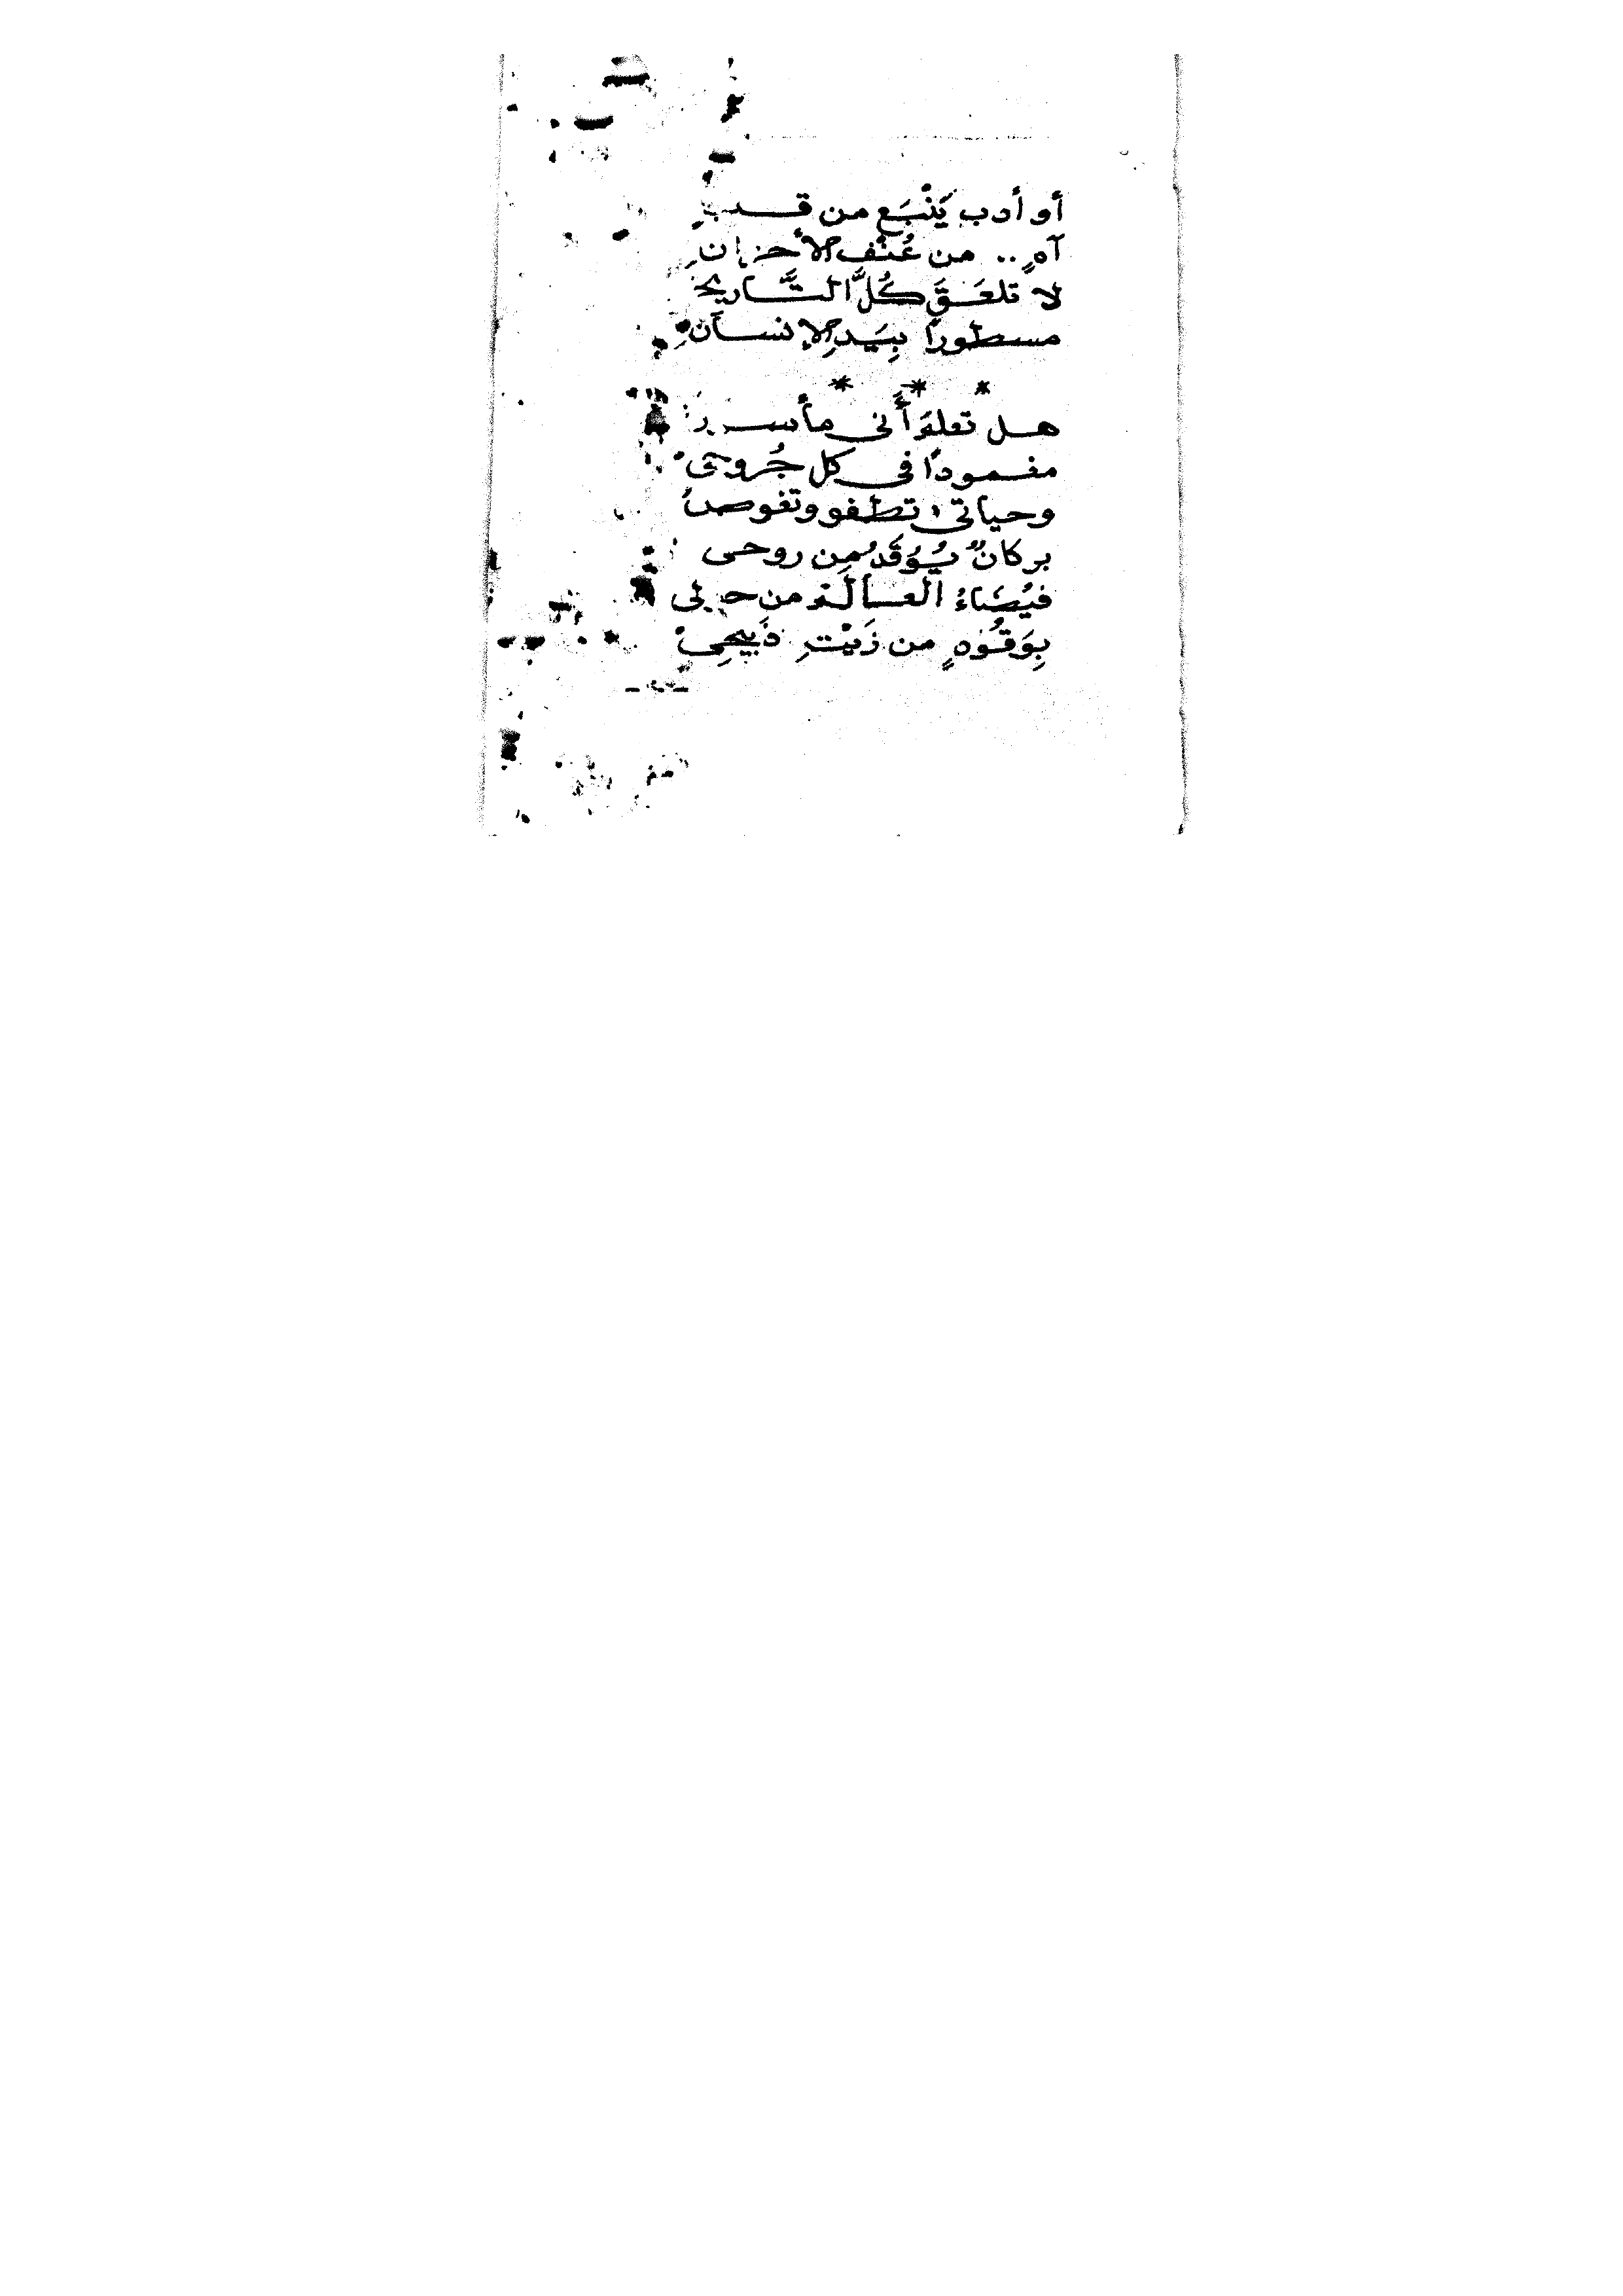 أو أدب يَنْبَع من قلب
آهٍ .. من عُنْف الأحزانِ
لا تلعَقَ كُلَّ التَّاريخ
مسطوراً بِيَدِ الإنسانِ
* * *
هل تعلمَ أَنى مأسور
مغموداً فى كل جُروحى
وحياتى تطفو وتغوصُ
بركانٌ يُوقَدُ مِن روحى
فيُضَاءُ العالم من حولى
بِوَقُودٍ من زَيْتِ ذَبيحِى